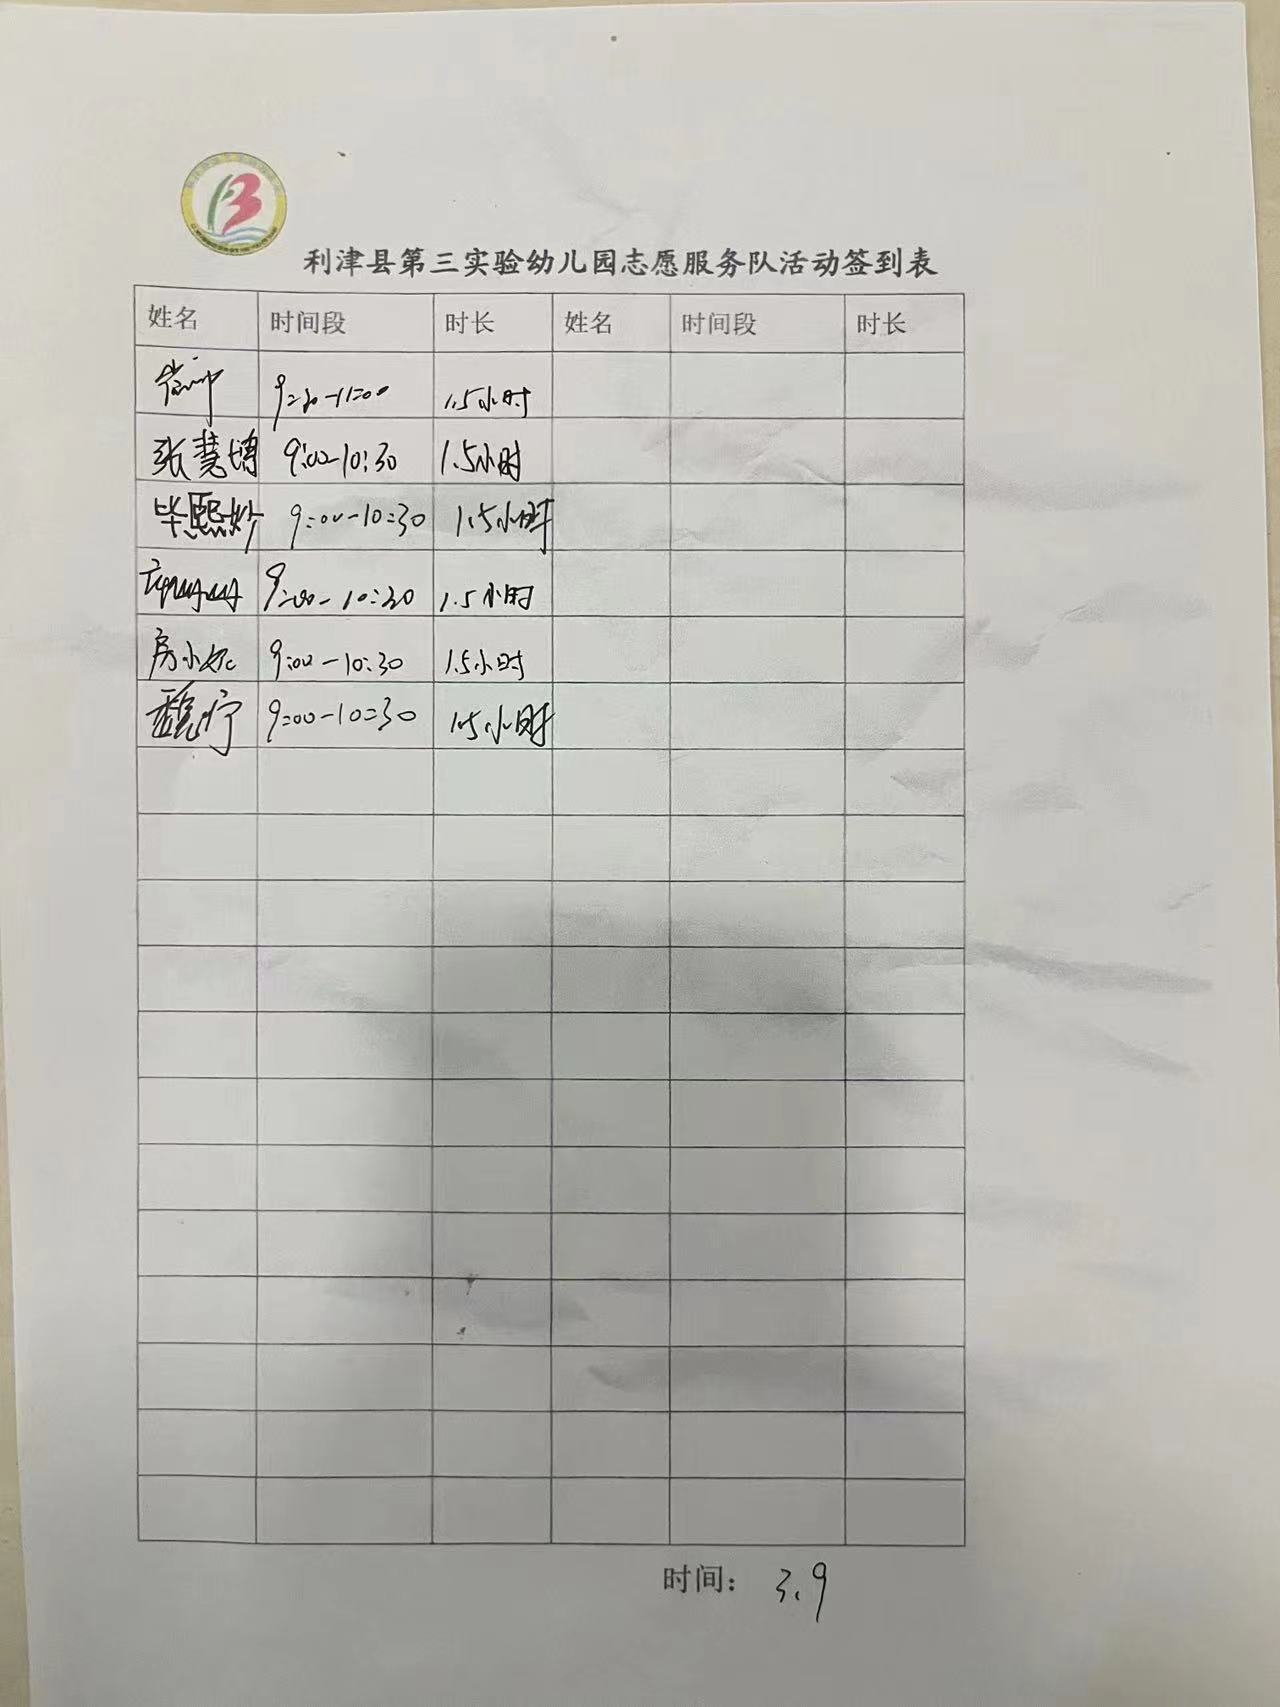 利津县第三实验幼儿园志愿服务队活动签到表
姓名 时间段 时长 姓名 时间段 时长
1.5小时
张慧博 9:00-10:30 1.5小时
毕熙妙 9:00-10:30 1.5小时
9:00-10:30 1.5小时
房小妮 9:00-10:30 1.5小时
9:00-10:30 1.5小时
时间: 3.9